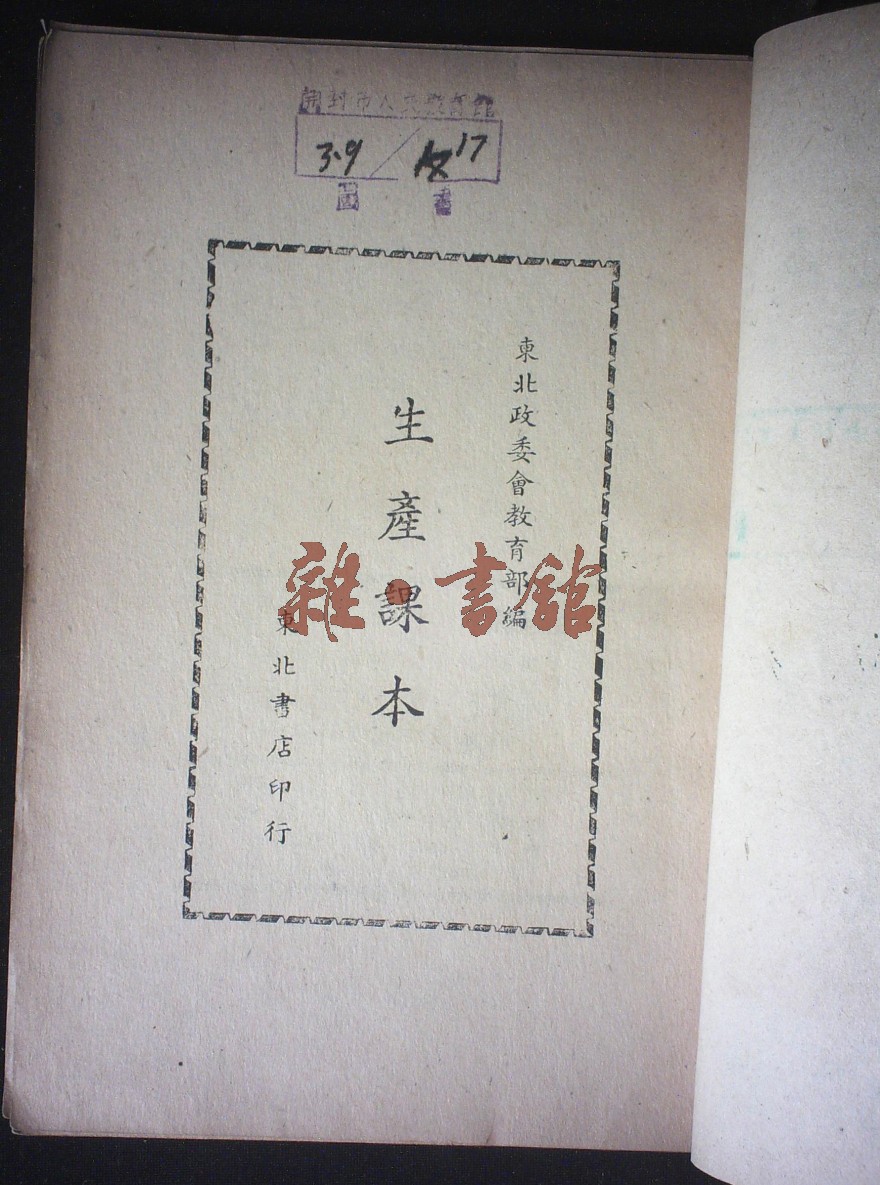 開封市人民教育館
3.9 / 17
圖書
東北政委會教育部編
生產課本
東北書店印行
雜·書館